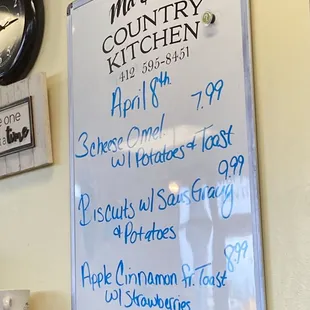 one
time
Ma
COUNTRY
KITCHEN
412 595-8451
April 8th
7.99
3 cheese Omel.
w/ Potatoes & Toast
9.99
Biscuits w/ Saus Gravy
& Potatoes
8.99
Apple Cinnamon fr. Toast
w/ Strawberries